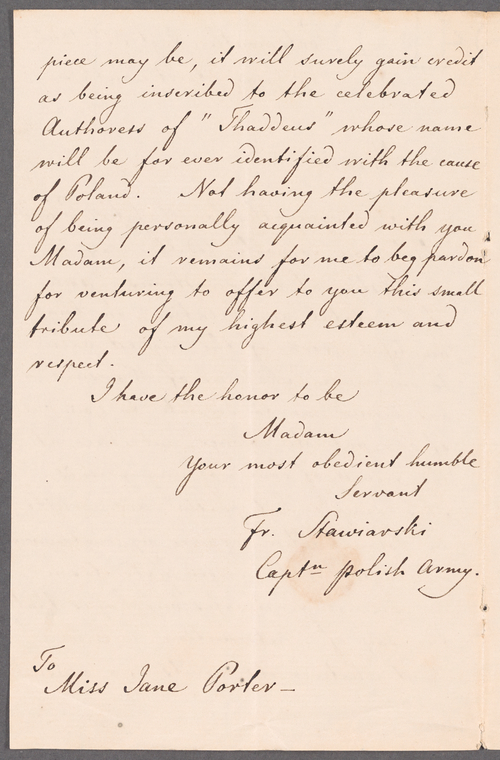 piece may be, it will surely gain credit
as being inscribed to the celebrated
Authoress of "Thaddeus" whose name
will be for ever identified with the cause
of Poland. Not having the pleasure
of being personally acquainted with you
Madam, it remains for me to beg pardon
for venturing to offer to you this small
tribute of my highest esteem and
respect.
I have the honor to be
Madam
Your most obedient humble
Servant
Fr. Stawiarski
Captn Polish Army.
To
Miss Jane Porter—